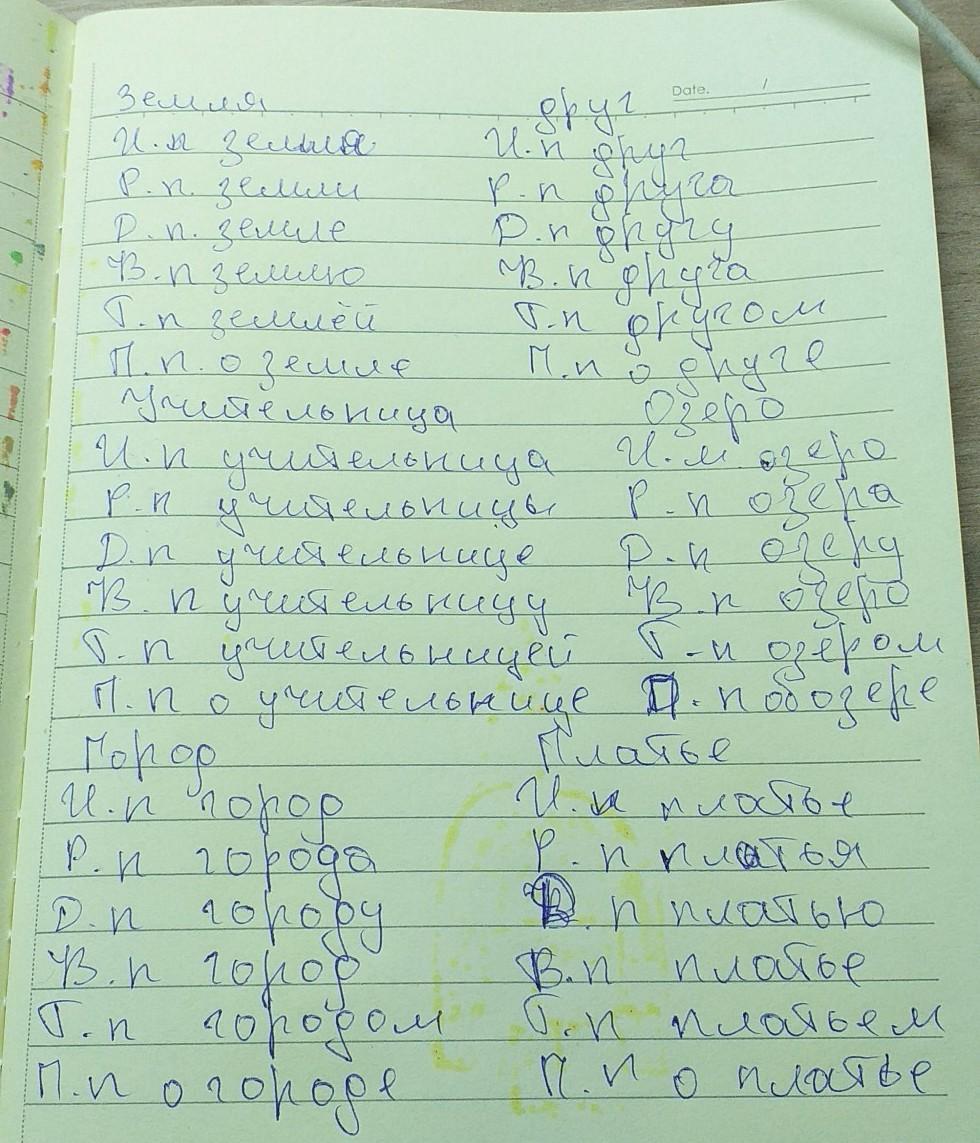 Date. /
Земля друг
И.п земля И.п друг
Р.п. земли Р.п друга
Д.п. земле Д.п другу
В.п землю В.п друга
Т.п землёй Т.п другом
П.п. о земле П.п о друге
Учительница Озеро
И.п учительница И.п. озеро
Р.п учительницы Р.п озера
Д.п учительнице Д.п озеру
В.п учительницу В.п озеро
Т.п учительницей Т.п озером
П.п о учительнице П.п об озере
Город Платье
И.п город И.п платье
Р.п города Р.п платья
Д.п городу Д.п платью
В.п город В.п платье
Т.п городом Т.п платьем
П.п о городе П.п о платье